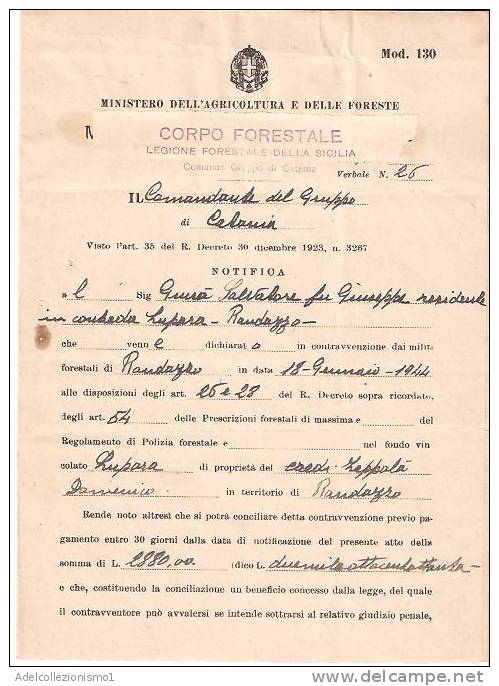 Mod. 130
MINISTERO DELL'AGRICOLTURA E DELLE FORESTE
CORPO FORESTALE
LEGIONE FORESTALE DELLA SICILIA
Comando Gruppo di Catania
Verbale N. 26
IL Comandante del Gruppo
di Catania
Visto l'art. 35 del R. Decreto 30 dicembre 1923, n. 3267
NOTIFICA
a l Sig Salvatore fu Giuseppe residente
in contrada Lupara - Randazzo -
che venne dichiarato in contravvenzione dai militi
forestali di Randazzo in data 18-Gennaio-1944
alle disposizioni degli art. 26 e 28 del R. Decreto sopra ricordato,
degli art. 54 delle Prescrizioni forestali di massima e del
Regolamento di Polizia forestale e nel fondo vin
colato Lupara di proprietà del eredi Zappalà
Domenico in territorio di Randazzo
Rende noto altresì che si potrà conciliare detta contravvenzione previo pa-
gamento entro 30 giorni dalla data di notificazione del presente atto della
somma di L. 2880,00 (dico L. duemilaottocentottanta
e che, costituendo la conciliazione un beneficio concesso dalla legge, del quale
il contravventore può avvalersi se intende sottrarsi al relativo giudizio penale,
Adelcollezionismo1
delcampe.net